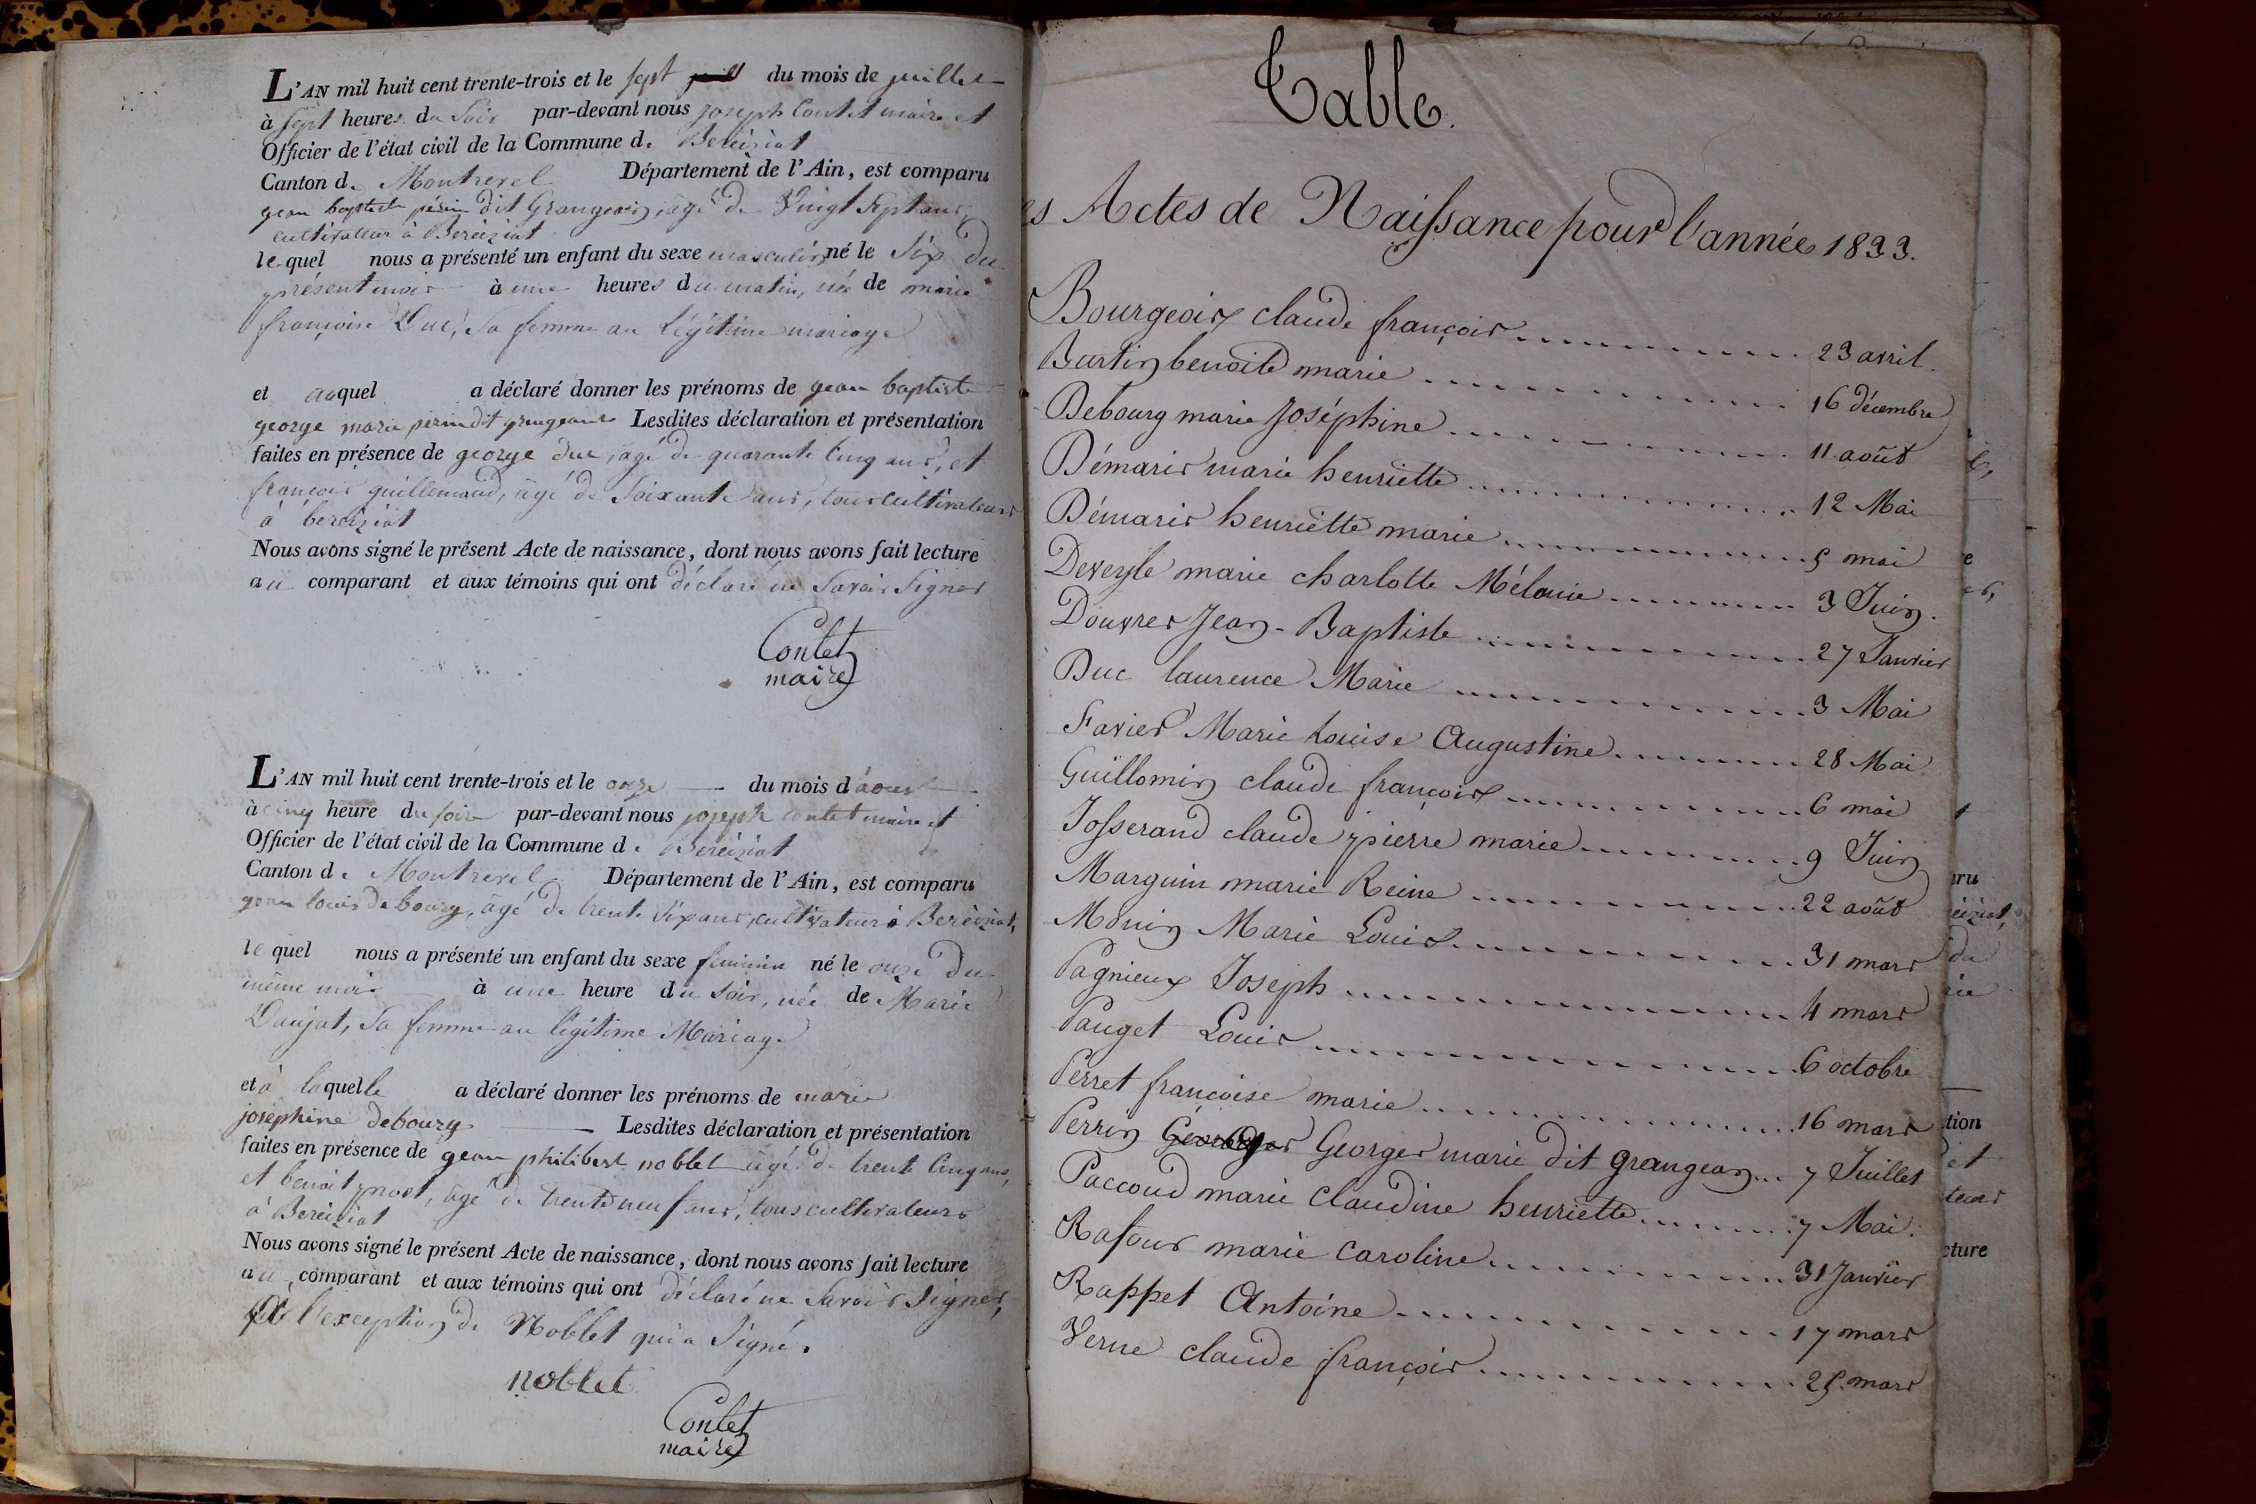 L'AN mil huit cent trente-trois et le sept du mois de juillet
à sept heures du soir par-devant nous joseph Contet maire et
Officier de l'état civil de la Commune de Béréziat
Canton de Montrevel Département de l'Ain, est comparu
gean baptiste périn dit Grangean, âgé de Vingt Sept ans,
cultivateur à Béréziat
lequel nous a présenté un enfant du sexe masculin né le Six du
présent mois à une heures du matin, né de marie
françoise Duc, Sa femme au légitime mariage
et auquel a déclaré donner les prénoms de gean baptiste
george marie perin dit grangeant Lesdites déclaration et présentation
faites en présence de george duc, âgé de quarante Cinq ans, et
françois guillemaud, âgé de Soixante ans, tous cultivateurs
à béréziat
Nous avons signé le présent Acte de naissance, dont nous avons fait lecture
au comparant et aux témoins qui ont déclaré ne Savoir Signer
Contet
maire
L'AN mil huit cent trente-trois et le onze du mois d'aoust
à cinq heure du soir par-devant nous joseph contet maire et
Officier de l'état civil de la Commune de Béréziat
Canton de Montrevel Département de l'Ain, est comparu
gean louis debourg, âgé de trente Six ans, cultivateur à Béréziat,
lequel nous a présenté un enfant du sexe féminin né le onze du
même mois à une heure du soir, née de Marie
Daujat, Sa femme au légitime Mariage
et à laquelle a déclaré donner les prénoms de marie
joséphine debourg Lesdites déclaration et présentation
faites en présence de gean philibert noblet âgé de trente Cinq ans,
et benoit prost, âgé de trente neuf ans, tous cultivateurs
à Béréziat
Nous avons signé le présent Acte de naissance, dont nous avons fait lecture
au comparant et aux témoins qui ont déclaré ne Savoir Signer,
à l'exception de Noblet qui a Signé.
noblet
Contet
maire
Table.
es Actes de Naissance pour l'année 1833.
Bourgeois claude françois 23 avril.
Burtin benoite marie 16 décembre
Debourg marie Joséphine 11 août
Démaris marie henriette 12 Mai
Démaris henriette marie 5 mai
Deveyle marie charlotte Mélanie 3 Juin.
Douvres Jean-Baptiste 27 Janvier
Duc laurence Marie 3 Mai
Favier Marie Louise Augustine 28 Mai
Guillomin claude françois 6 mai
Josserand claude pierre marie 9 Juin
Marguin marie Reine 22 août
Monin Marie Louis 31 mars
Pagnieux Joseph 4 mars
Pauget Louis 6 octobre
Perret francoise marie 16 mars
Perrin Georges Georges marie dit grangean 7 Juillet
Paccoud marie claudine henriette 7 Mai.
Rafour marie caroline 31 Janvier
Rappet Antoine 17 mars
Verne claude françois 25 mars